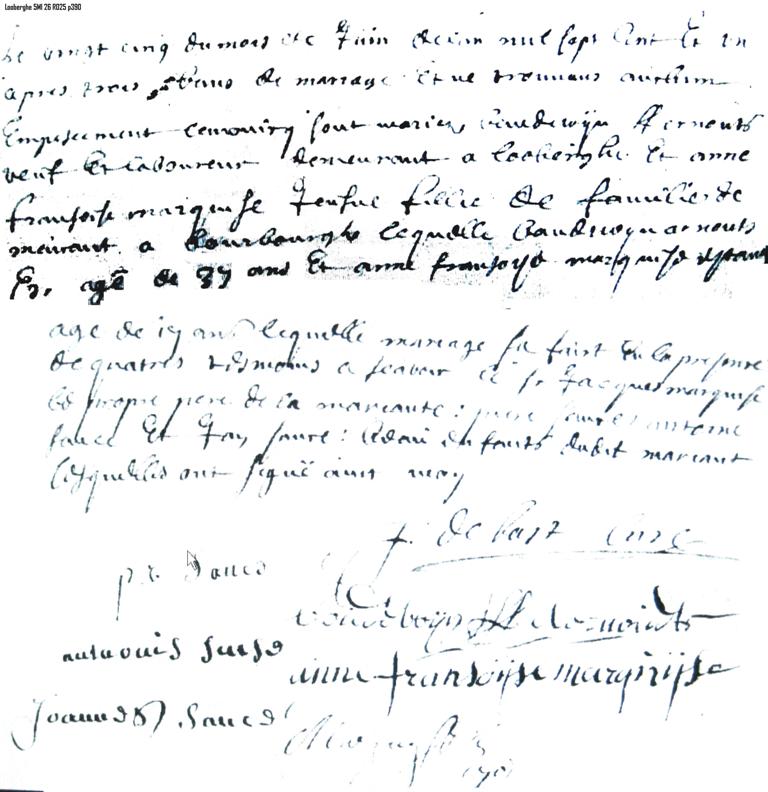 Looberghe 5MI 26 R025 p390
Le vingt cinq du mois de Juin de l'an mil sept Cent Et un
apres trois bans de mariage Et ne trouvans aucum
Empescement canonicq sont mariez Baudewyn Aernouts
veuf Et laboureur demeurant a looberghe Et anne
franscoise marquise Jensne fillie de familie de
meurant a bourbourgh lequelle baudewyn arnouts
Est agé de 37 ans Et anne fransoyse marquise estant
age de 19 ans lequelle mariage fu faict En la presence
de quatres tesmoins a scavoir le sr Jacques marquise
le propre pere de la mariante : piere sauce antoine
sauce Et Jan sauce : enfants dudit mariant
lesquelles ont signé avec moy
f. de bast Curé
p.r. Sauce
baudewyn Aernouts
antwonis sause
anne fransoijse marquijse
Joannes Sauce
Marquise
1701